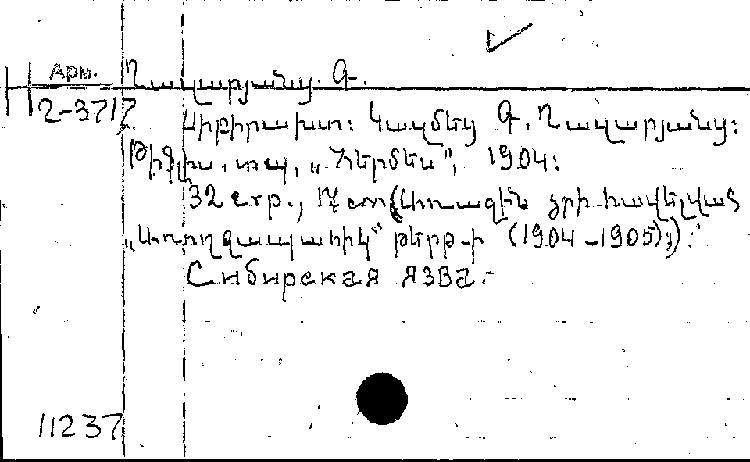 Арм. Ղավարյանց. Գ.
2-3717
Սիբիրախտ: Կազմեց Գ. Ղավարյանց:
Թիֆլիս, տպ. „Հերմես”, 1904:
32 стр., 17 см (Առաջին թրի հավելված
„Առողջապահիկ” թերթ-ի (1904-1905):):
Сибирская язва.-
11237